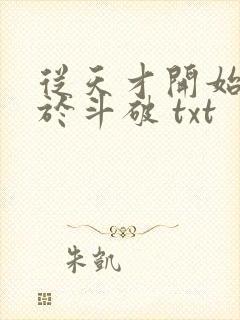 從天才開始
於斗破 txt
朱凱